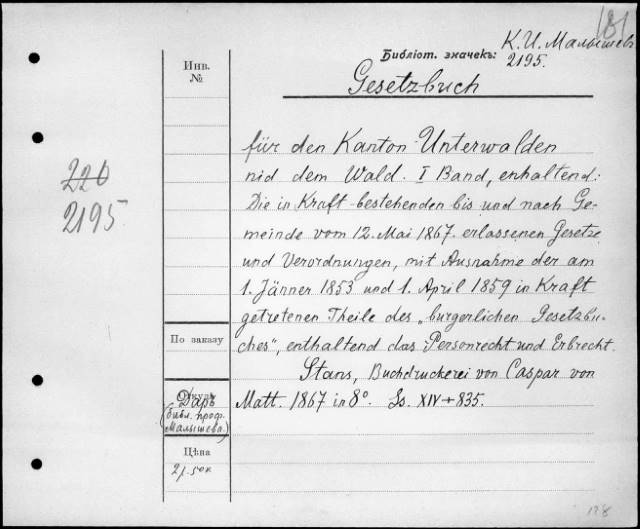 181
К. И. Малышев
Библіот. значекъ: 2195.
Инв. №
Gesetzbuch
für den Kanton Unterwalden
nid dem Wald. I Band, enhaltend:
Die in Kraft bestehenden bis und nach Ge-
meinde vom 12. Mai 1867. erlassenen Gesetze
und Verordnungen, mit Ausnahme der am
1. Jänner 1853 und 1. April 1859 in Kraft
getretenen Theile des „burgerlichen Gesetzbu-
ches", enthaltend das Personrecht und Erbrecht.
Stans, Buchdruckerei von Caspar von
Matt. 1867 in 8°. Ss. XIV+835.
220
2195
По заказу
Откуда
Даръ
(библ. проф.
Малышева.)
Цѣна
2 р. 50 к
128